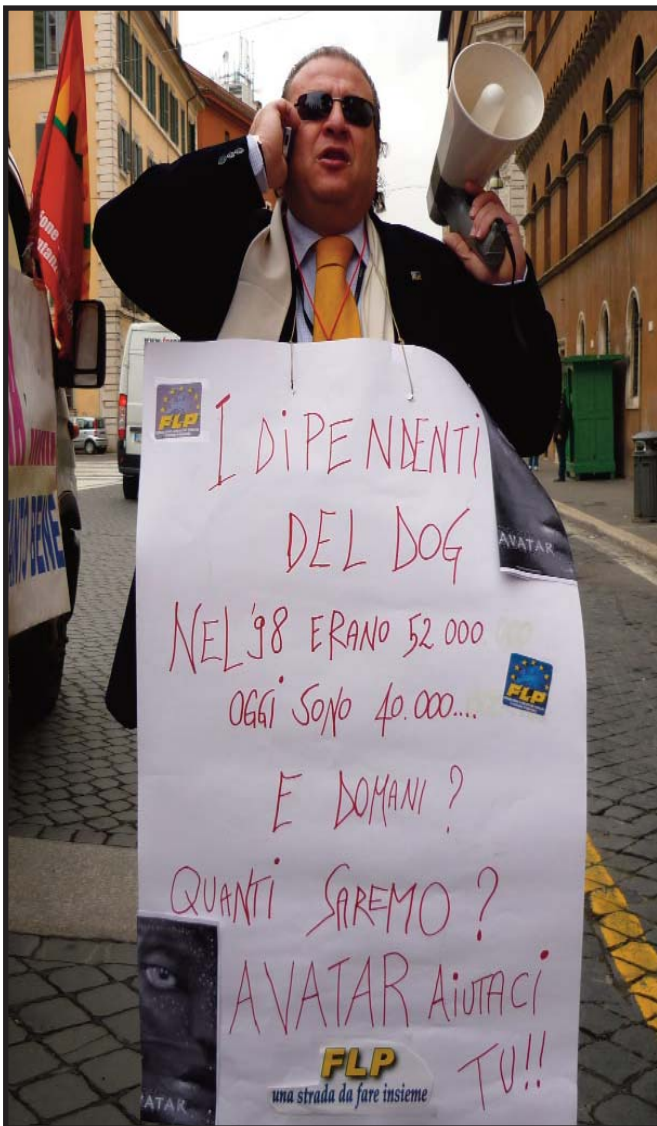 www.
FLP
I DIPENDENTI
DEL DOG
AVATAR
NEL '98 ERANO 52000
OGGI SONO 40.000....
FLP
E DOMANI?
QUANTI SAREMO?
AVATAR AiUTACI
TU!!
AVATAR
FLP
una strada da fare insieme
BENE